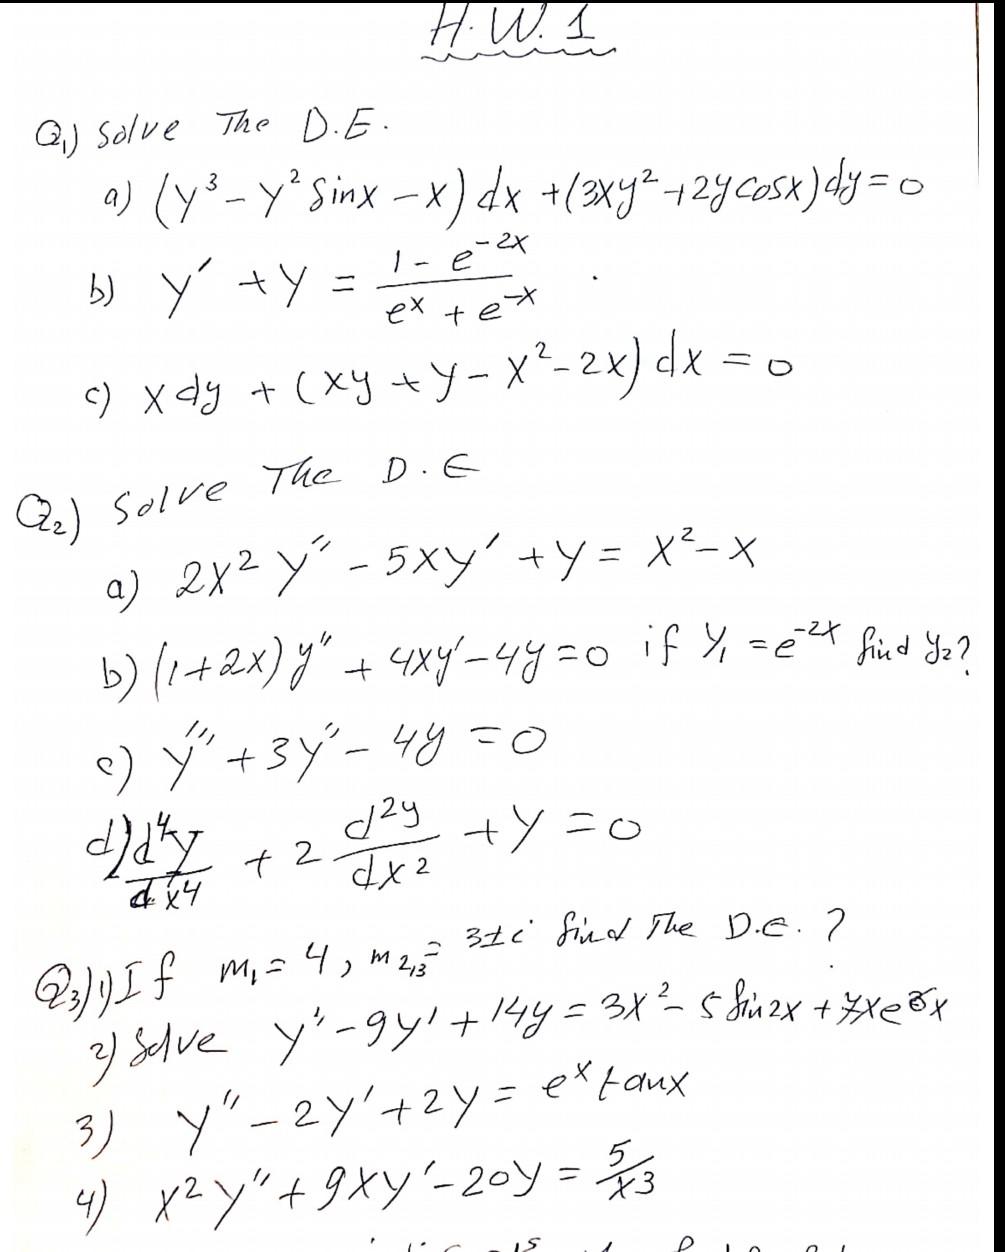 H.W. 1
Q1) Solve The D.E.
a) (y³ - y² sinx - x) dx + (3xy² + 2y cosx) dy = 0
b) y′ + y = (1 - e^-2x) / (e^x + e^-x) .
c) x dy + (xy + y - x² - 2x) dx = 0
Q2) Solve The D.E
a) 2x² y″ - 5xy′ + y = x² - x
b) (1+2x) y″ + 4xy′ - 4y = 0 if y₁ = e^-2x find y₂?
c) y‴ + 3y″ - 4y = 0
d) d⁴y/dx⁴ + 2 d²y/dx² + y = 0
Q3) 1) If m₁ = 4, m₂,₃ = 3±i find The D.E. ?
2) Solve y″ - 9y′ + 14y = 3x² - 5 sin2x + 7xe x
3) y″ - 2y′ + 2y = e^x tanx
4) x² y″ + 9xy′ - 20y = 5/x³